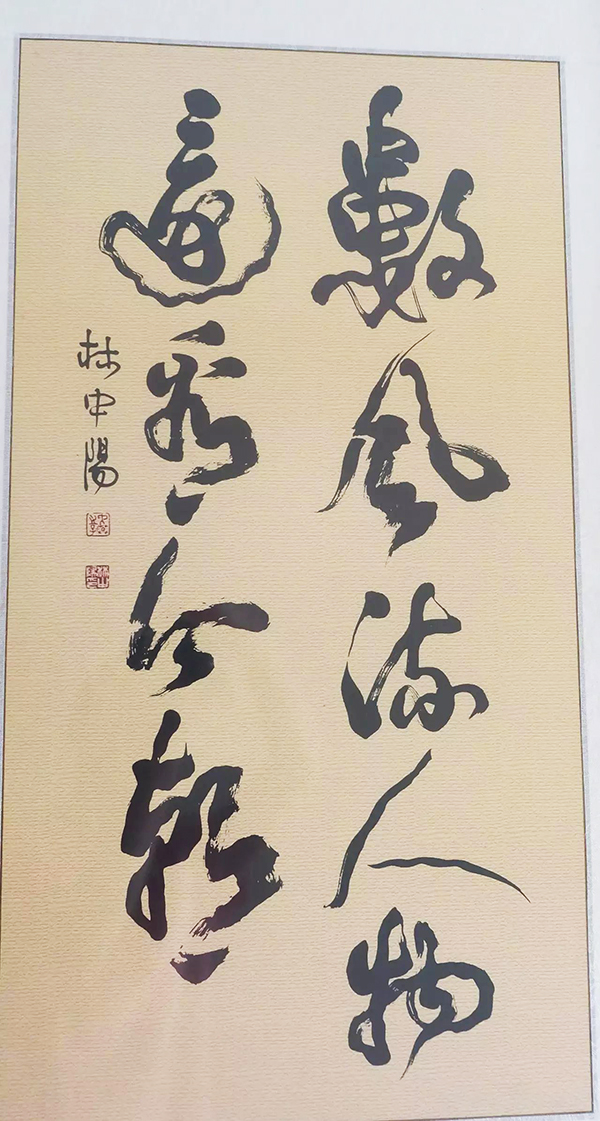 數風流人物
還看今朝
林中陽